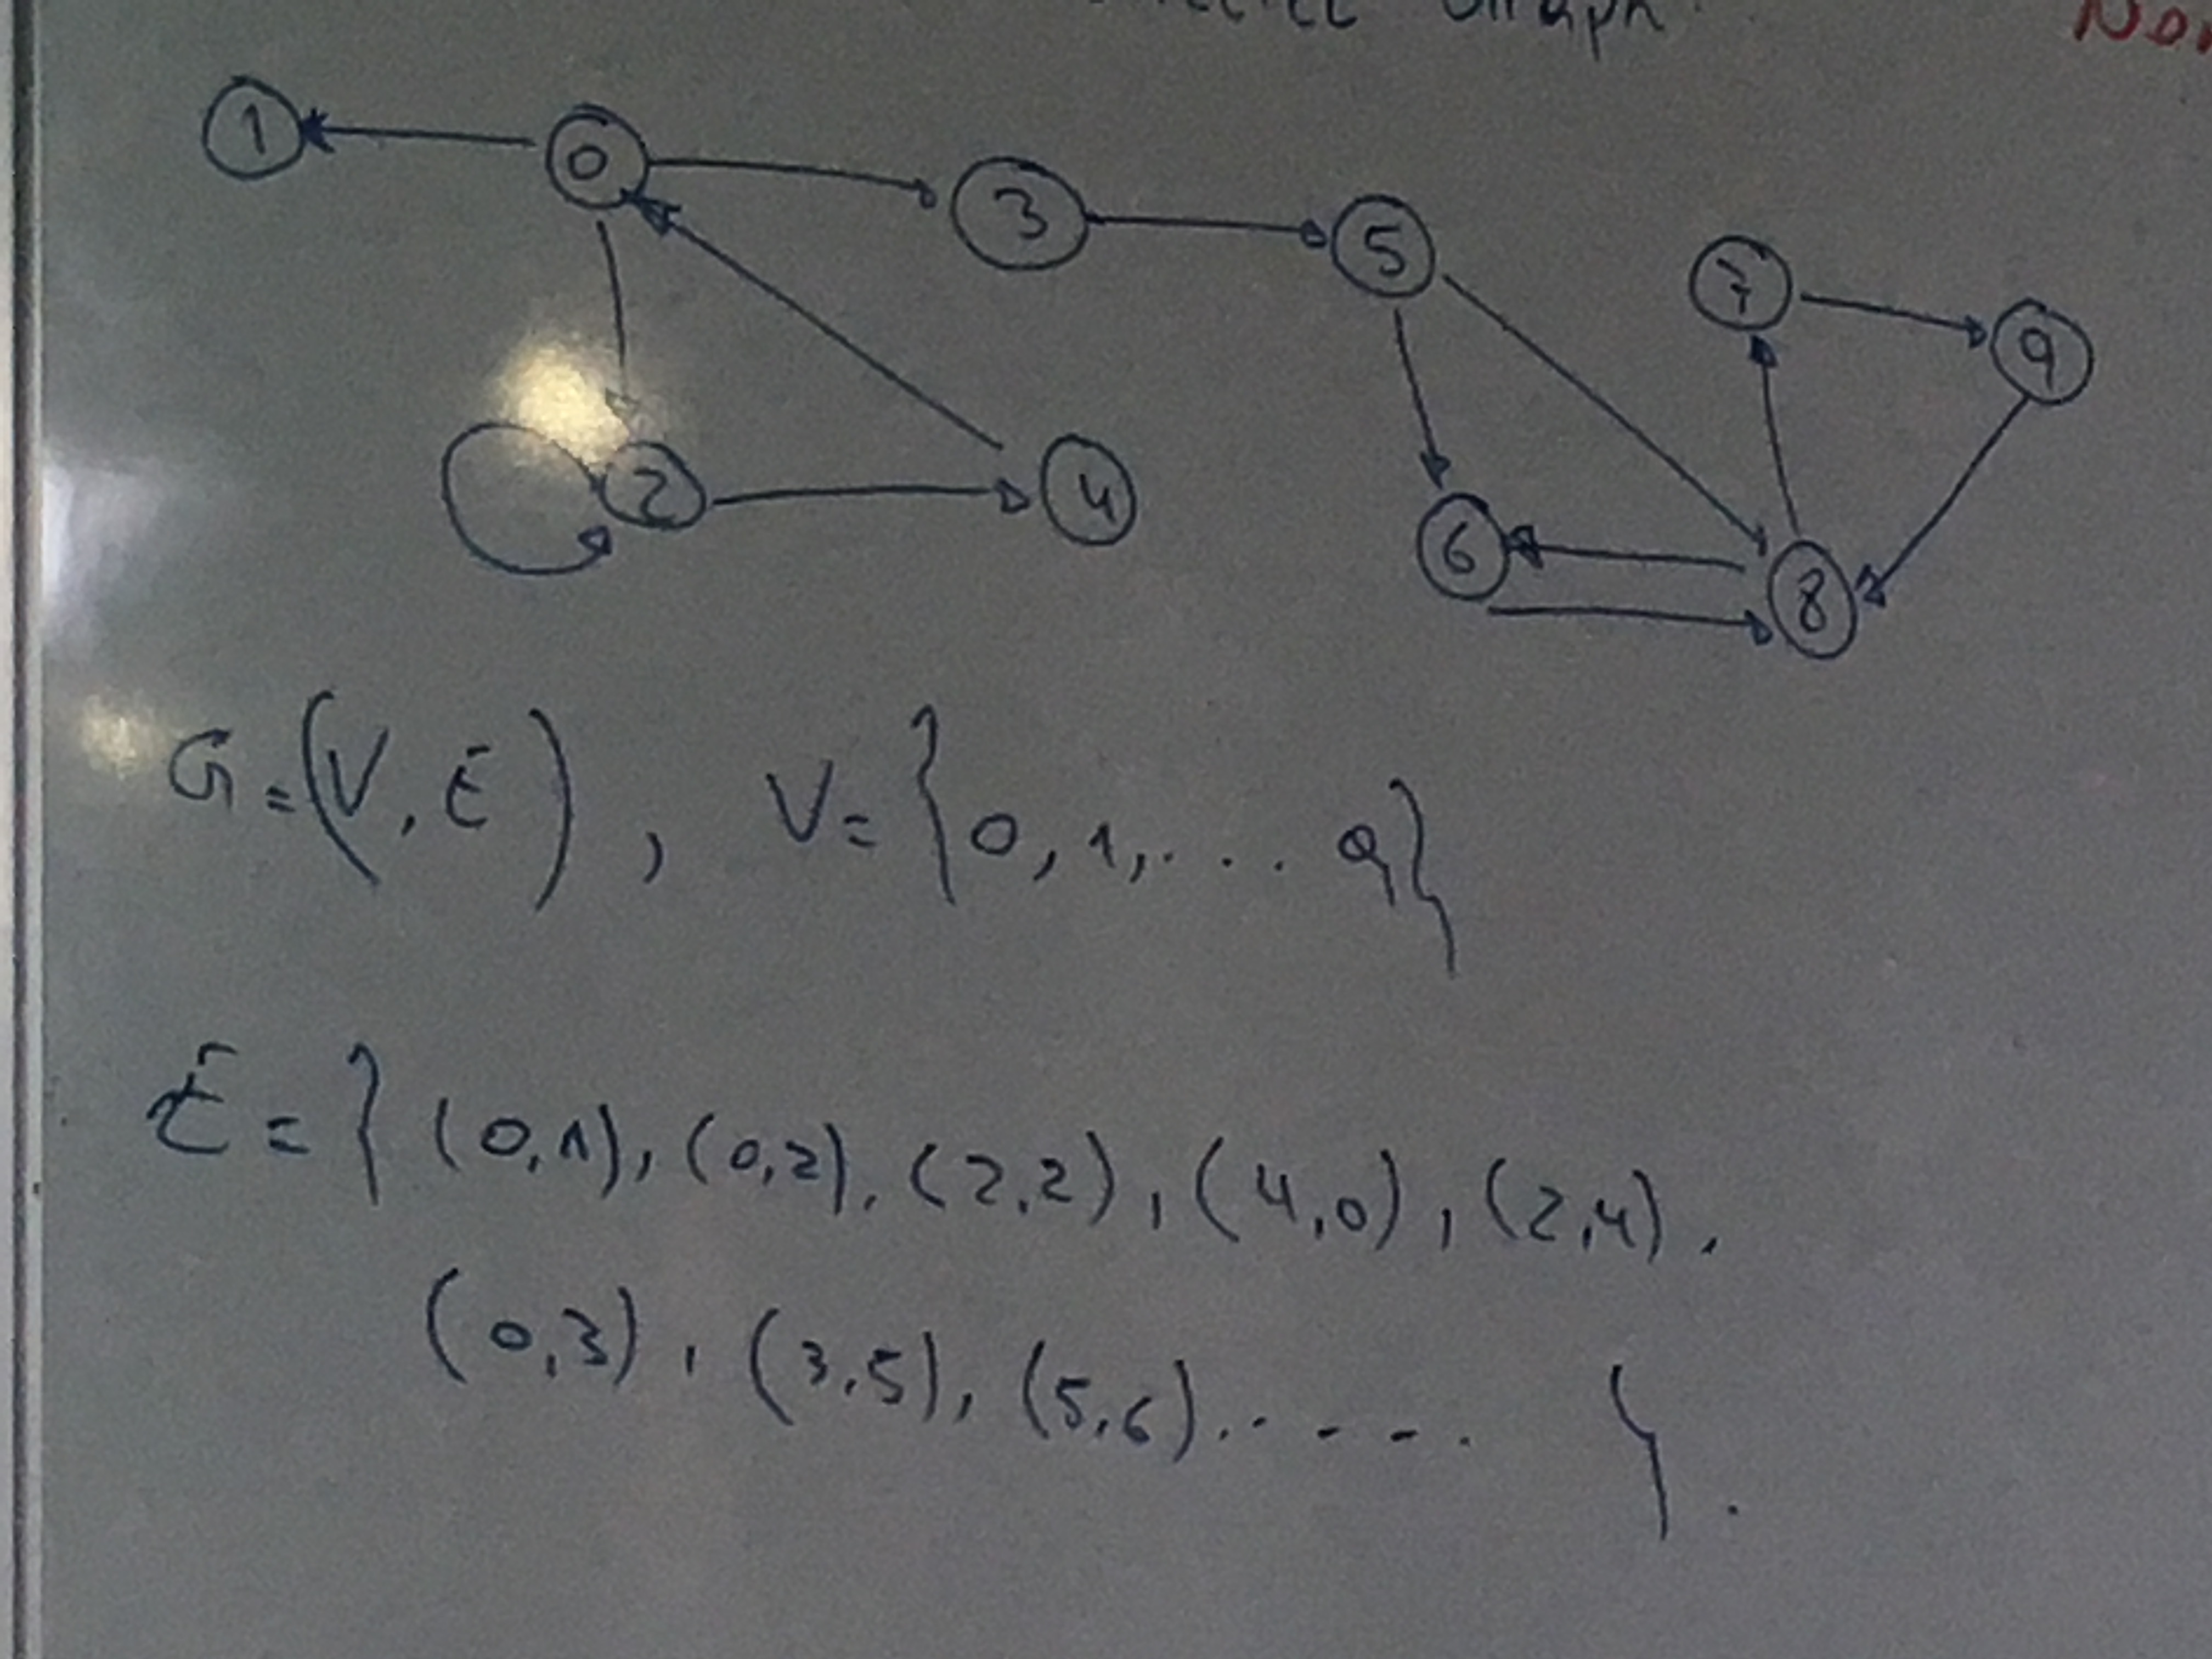 Graph
1 0 3 5 7 9
2 4 6 8
G=(V,E), V={0,1,... 9}
E={(0,1),(0,2),(2,2),(4,0),(2,4),
(0,3),(3,5),(5,6),.----. }.